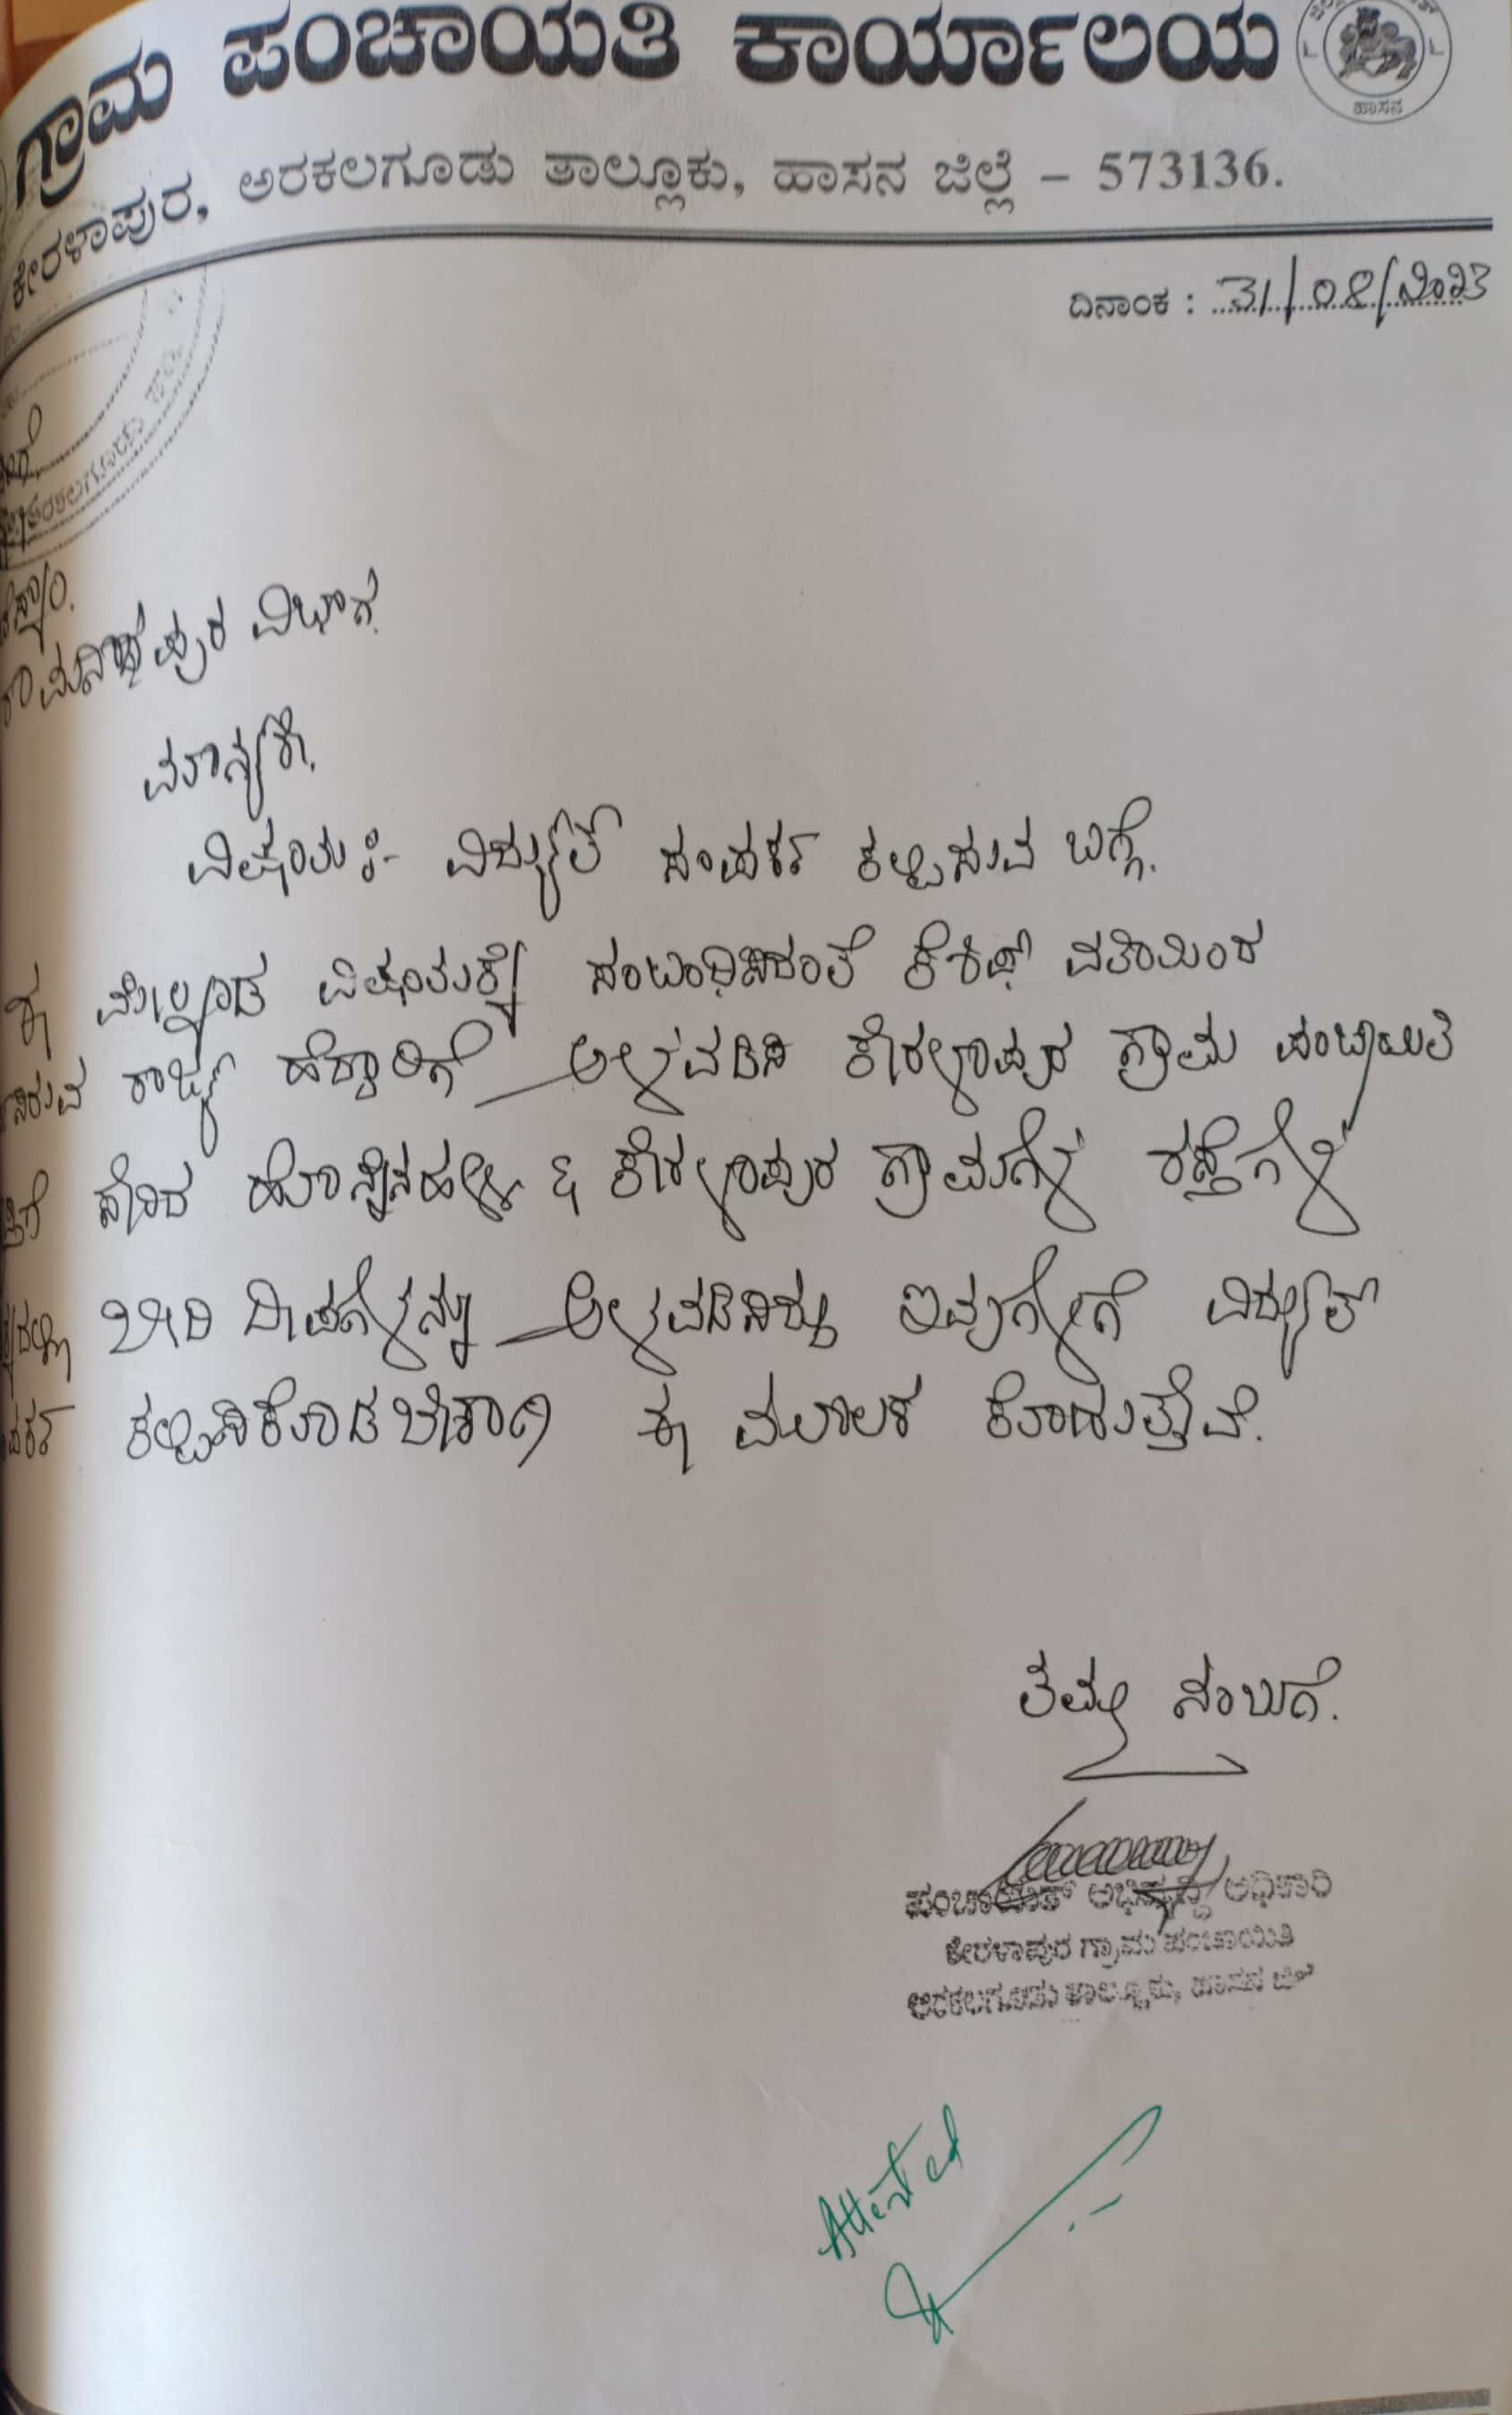 ಗ್ರಾಮ ಪಂಚಾಯತಿ ಕಾರ್ಯಾಲಯ
ಹಾಸನ
ಕೇರಳಾಪುರ, ಅರಕಲಗೂಡು ತಾಲ್ಲೂಕು, ಹಾಸನ ಜಿಲ್ಲೆ – 573136.
ದಿನಾಂಕ : 31/08/2023
ಅರಕಲಗೂಡು
ರಾಮನಾಥಪುರ ವಿಭಾಗ.
ಮಾನ್ಯರೇ.
ವಿಷಯ:- ವಿದ್ಯುತ್ ಸಂಪರ್ಕ ಕಲ್ಪಿಸುವ ಬಗ್ಗೆ.
ಈ ಮೇಲ್ಕಂಡ ವಿಷಯಕ್ಕೆ ಸಂಬಂಧಿಸಿದಂತೆ ಕೆಶಿಪ್ ವತಿಯಿಂದ
ರಾಜ್ಯ ಹೆದ್ದಾರಿಗೆ ಅಳವಡಿಸಿ ಕೇರಳಾಪುರ ಗ್ರಾಮ ಪಂಚಾಯಿತಿ
ಸೇರಿದ ಹೊನ್ನೇನಹಳ್ಳಿ & ಕೇರಳಾಪುರ ಗ್ರಾಮಗಳ ರಸ್ತೆಗಳ
ಬೀದಿ ದೀಪಗಳನ್ನು ಅಳವಡಿಸಿದ್ದು ಇವುಗಳಿಗೆ ವಿದ್ಯುತ್
ಕಲ್ಪಿಸಿಕೊಡಬೇಕಾಗಿ ಈ ಮೂಲಕ ಕೋರುತ್ತೇವೆ.
ತಮ್ಮ ನಂಬುಗೆ.
ಪಂಚಾಯತ್ ಅಭಿವೃದ್ಧಿ ಅಧಿಕಾರಿ
ಕೇರಳಾಪುರ ಗ್ರಾಮ ಪಂಚಾಯಿತಿ
ಅರಕಲಗೂಡು ತಾಲ್ಲೂಕು, ಹಾಸನ ಜಿಲ್ಲೆ
Attested